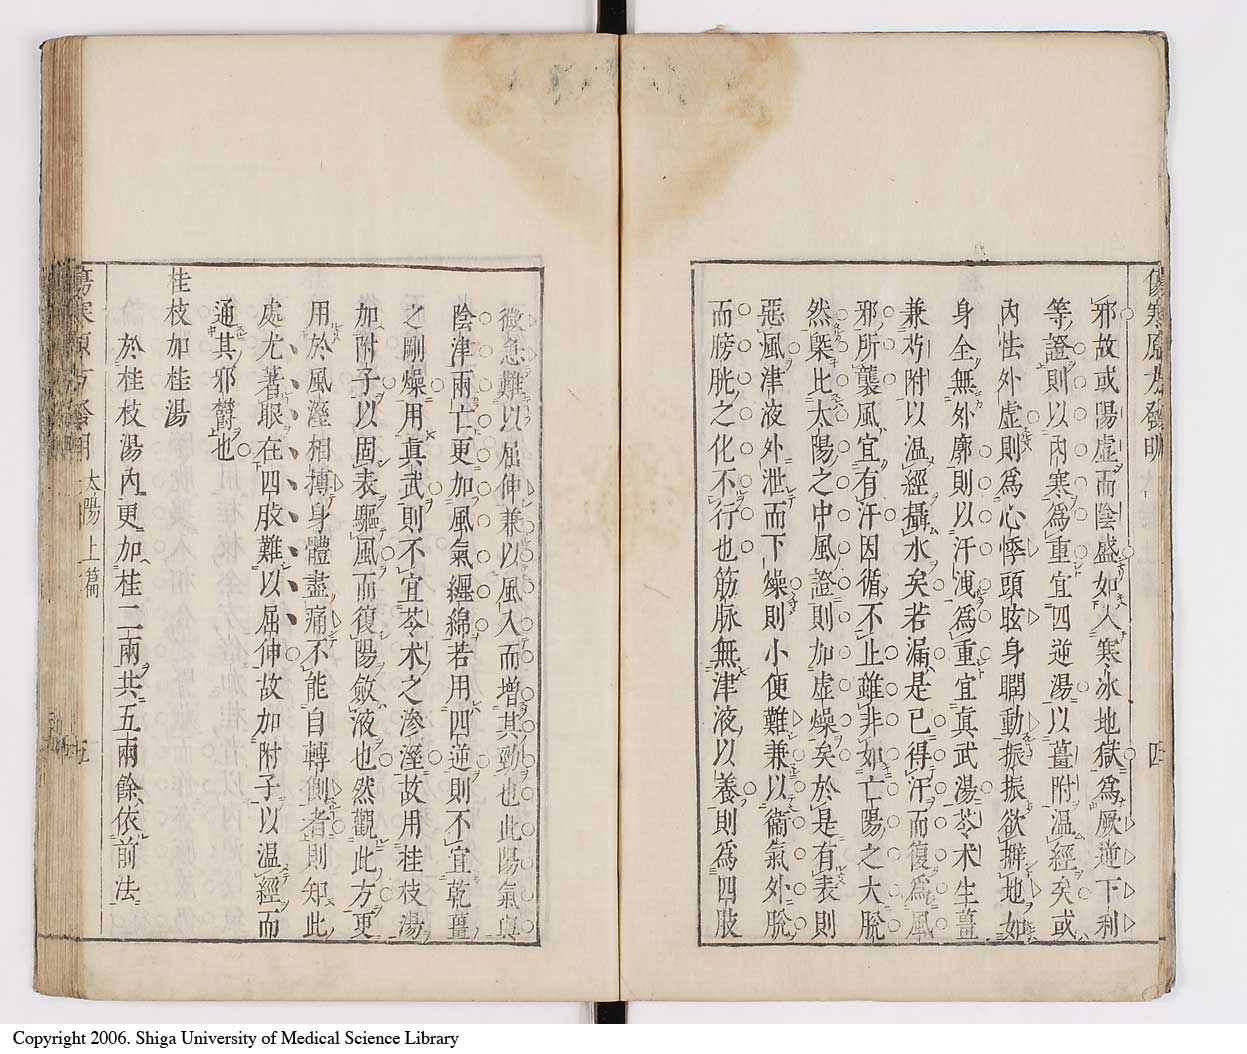 傷寒原方發明
四
邪故或陽虛而陰盛如入寒冰地獄爲厥逆下利
等證則以內寒爲重宜四逆湯以薑附溫經矣或
內怯外虛則爲心悸頭眩身瞤動振振欲擗地如
身全無外廓則以汗洩爲重宜真武湯苓术生薑
兼芍附以溫經攝水矣若漏是已得汗而復爲風
邪所襲風宜有汗因循不止雖非如亡陽之大脫
然槩比太陽之中風證則加虛燥矣於是有表則
惡風津液外泄而下燥則小便難兼以衞氣外脫
而膀胱之化不行也筋脉無津液以養則爲四肢
微急難以屈伸兼以風入而增其勁也此陽氣與
陰津兩亡更加風氣纒綿若用四逆則不宜乾薑
之剛燥用真武則不宜苓术之滲溼故用桂枝湯
加附子以固表驅風而復陽斂液也然觀此方更
用於風溼相搏身體盡痛不能自轉側者則知此
處尤著眼在四肢難以屈伸故加附子以溫經而
通其邪欝也
桂枝加桂湯
於桂枝湯內更加桂二兩共五兩餘依前法
傷寒原方發明 太陽上篇
五
Copyright 2006. Shiga University of Medical Science Library